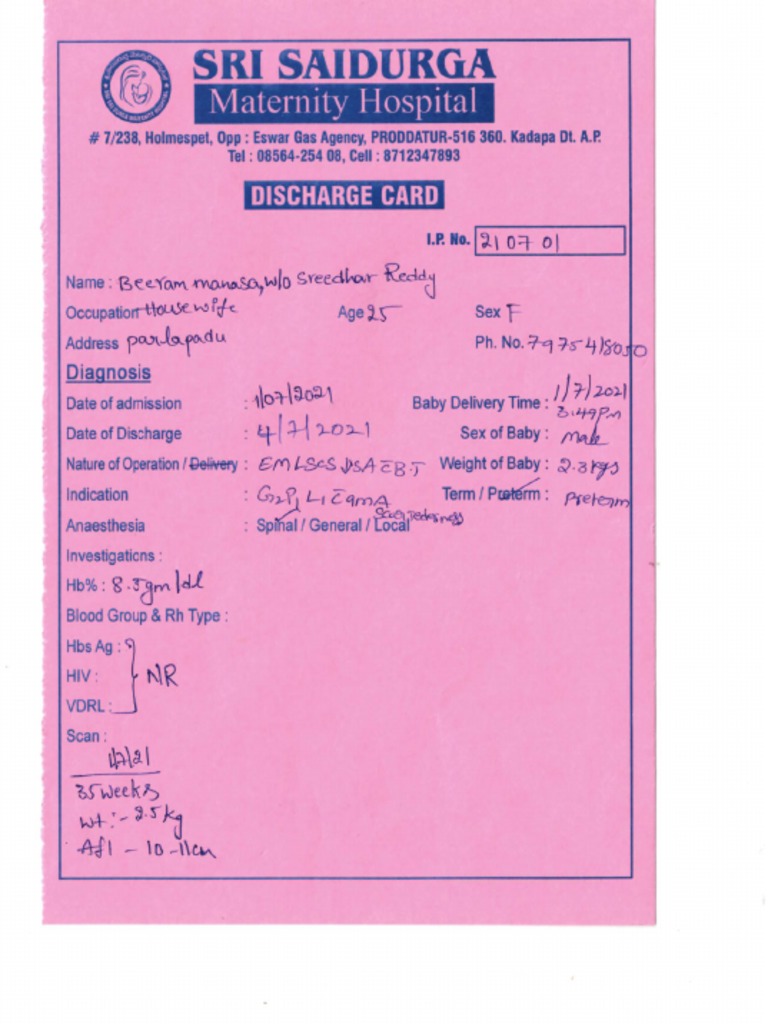 SRI SAIDURGA
Maternity Hospital
# 7/238, Holmespet, Opp : Eswar Gas Agency, PRODDATUR-516 360. Kadapa Dt. A.P.
Tel : 08564-254 08, Cell : 8712347893
DISCHARGE CARD
I.P. No. 210701
Name : Beeram manasa, w/o Sreedhar Reddy
Occupation Housewife Age 25 Sex F
Address parlapadu Ph. No. 7975418050
Diagnosis
Date of admission : 1/07/2021 Baby Delivery Time : 1/7/2021 3.49Pm
Date of Discharge : 4/7/2021 Sex of Baby : male
Nature of Operation / Delivery : EMLSCS Weight of Baby : 2.3kgs
Indication : G2P1L1 C 9MA Term / Preterm : Preterm
Anaesthesia : Spinal / General / Local
Investigations :
Hb% : 8.5gm/dl
Blood Group & Rh Type :
Hbs Ag :
HIV : NR
VDRL :
Scan :
1/7/21
35 weeks
wt :- 2.5kg
AfI - 10-11cm